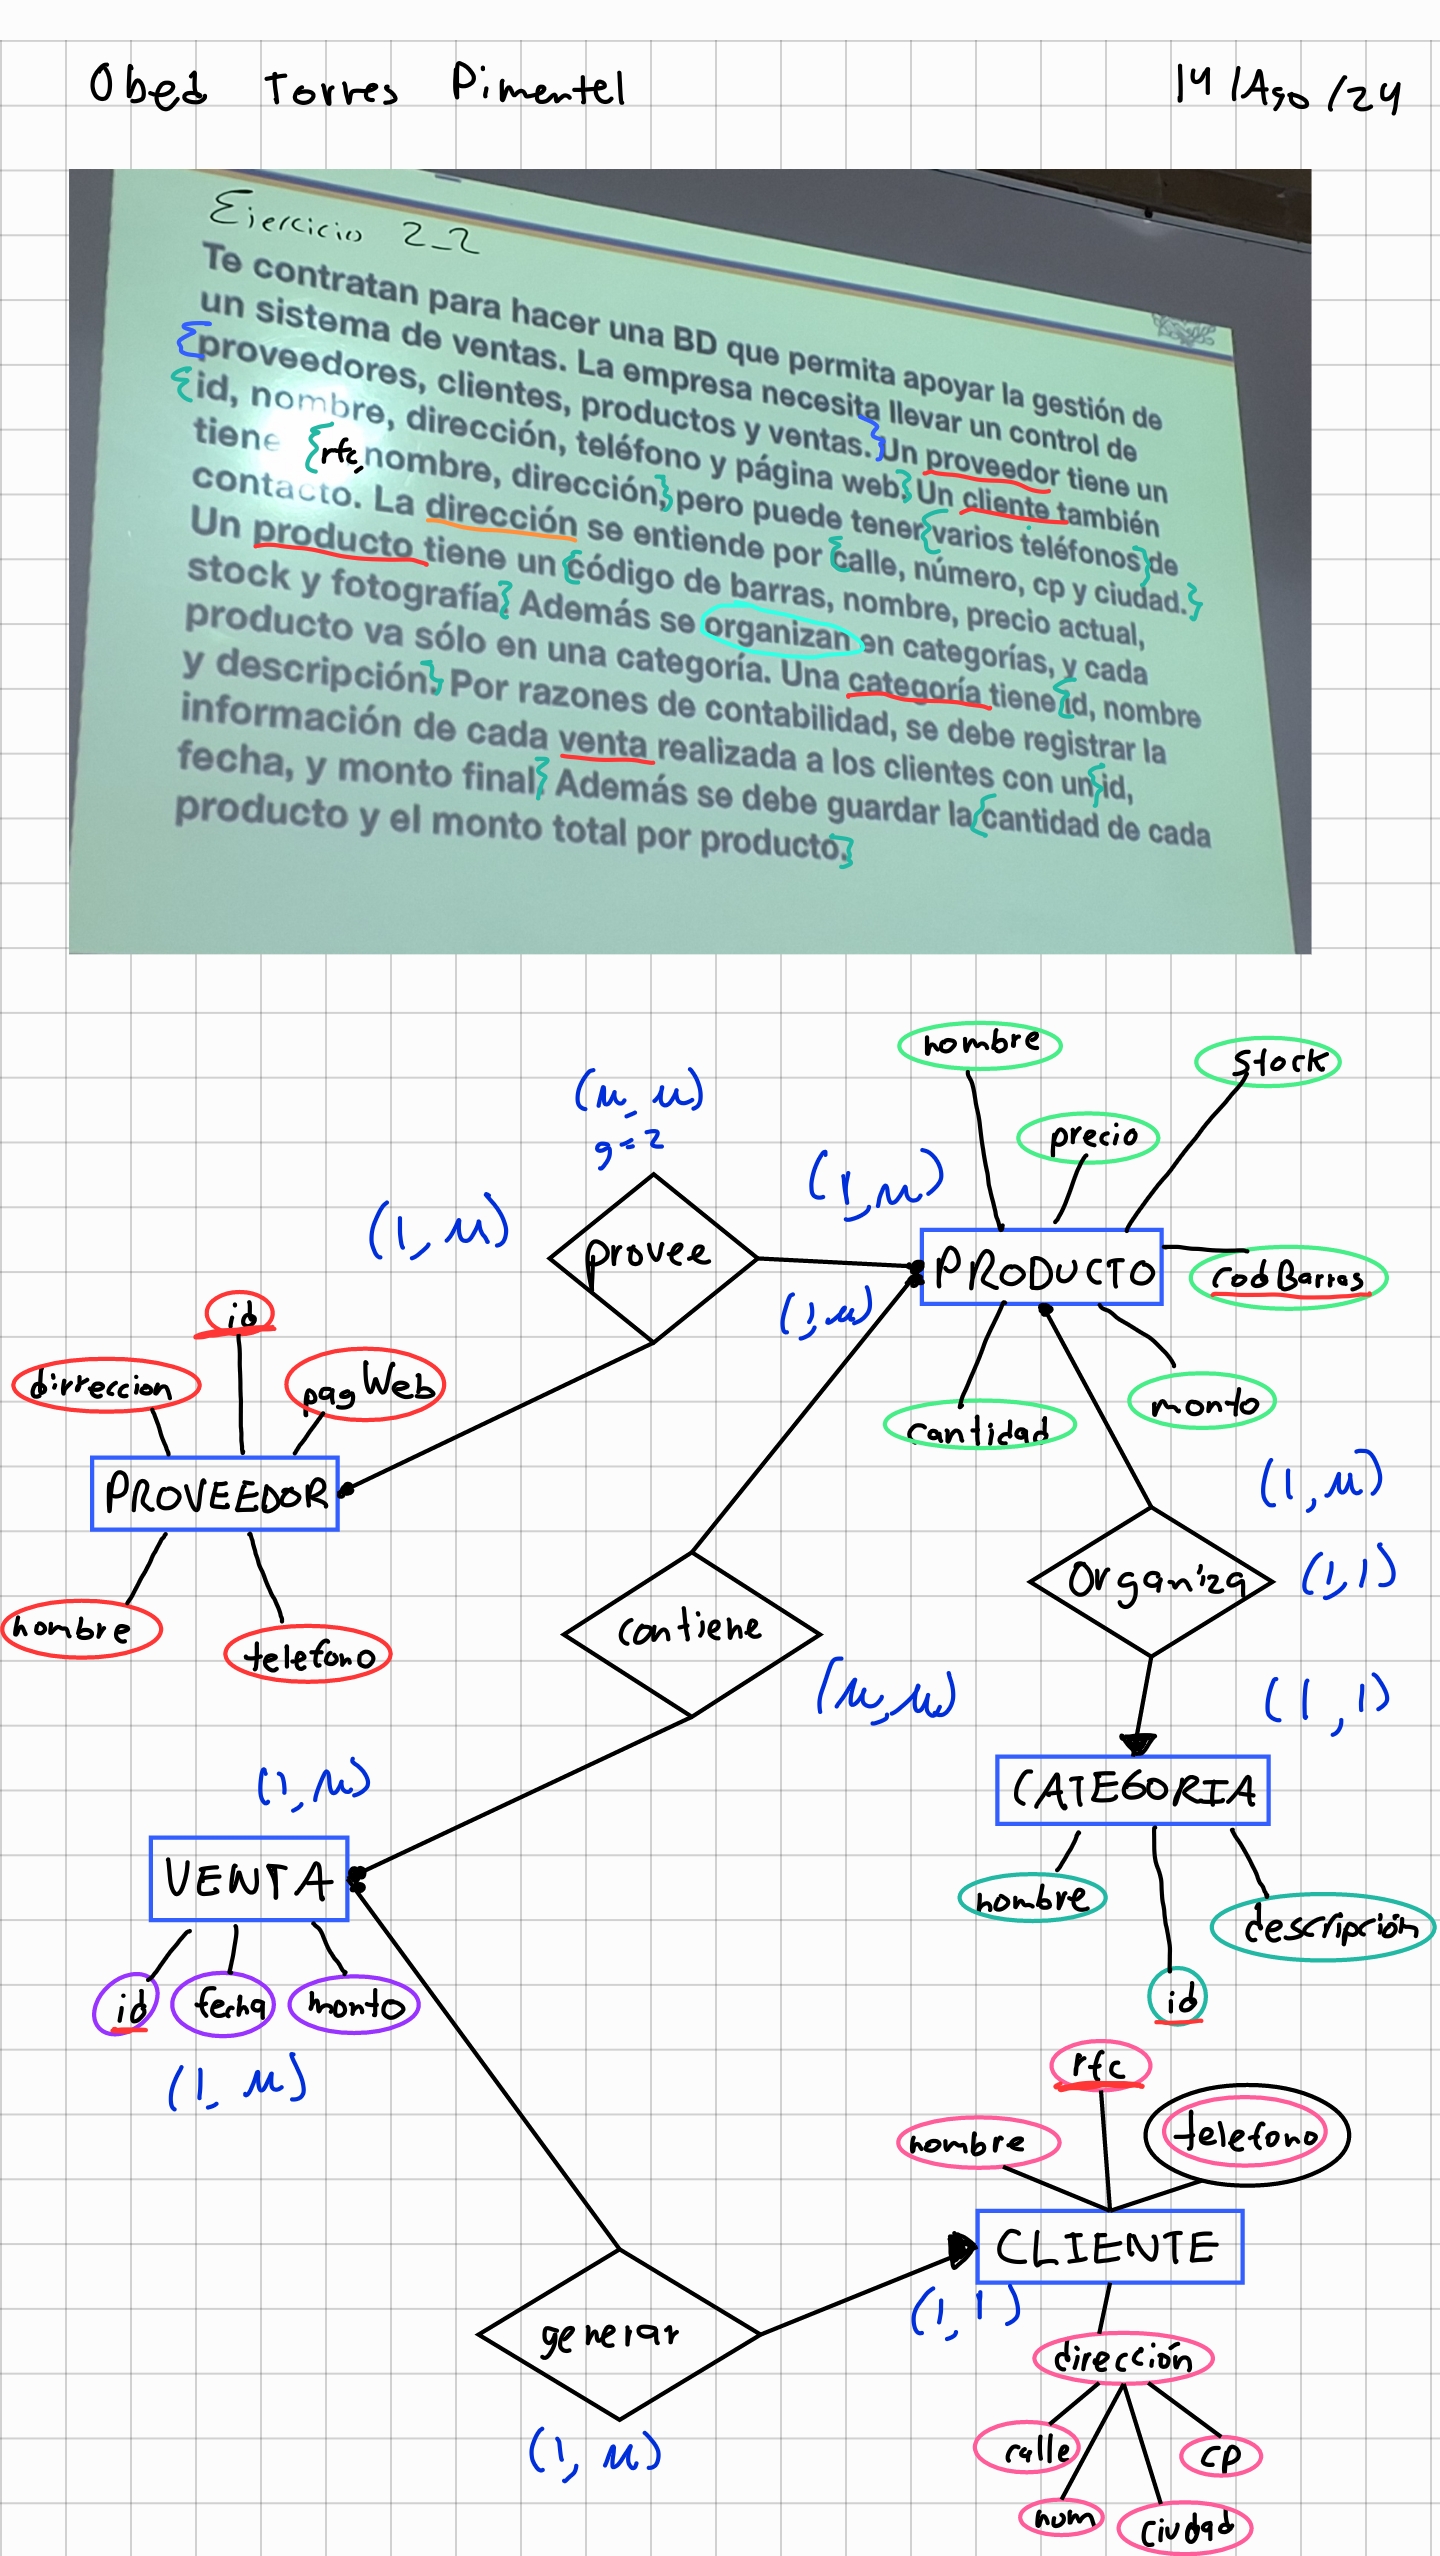 Obed Torres Pimentel
14/Ago/24
Ejercicio 2_2
Te contratan para hacer una BD que permita apoyar la gestión de
un sistema de ventas. La empresa necesita llevar un control de
{proveedores, clientes, productos y ventas.} Un proveedor tiene un
{id, nombre, dirección, teléfono y página web.} Un cliente también
tiene {rfc, nombre, dirección,} pero puede tener {varios teléfonos} de
contacto. La dirección se entiende por {calle, número, cp y ciudad.}
Un producto tiene un {código de barras, nombre, precio actual,
stock y fotografía.} Además se organizan en categorías, y cada
producto va sólo en una categoría. Una categoría tiene {id, nombre
y descripción.} Por razones de contabilidad, se debe registrar la
información de cada venta realizada a los clientes con un {id,
fecha, y monto final.} Además se debe guardar la {cantidad de cada
producto y el monto total por producto.}
nombre
stock
(M,M)
g=2
precio
(1,M)
(1,M)
provee
PRODUCTO
codBarras
(1,M)
id
dirreccion
pagWeb
monto
cantidad
PROVEEDOR
(1,M)
Organiza
(1,1)
nombre
telefono
contiene
(M,M)
(1,1)
(1,M)
CATEGORIA
VENTA
nombre
descripción
id
fecha
monto
id
(1,M)
rfc
nombre
telefono
CLIENTE
(1,1)
generar
dirección
(1,M)
calle
cp
num
ciudad